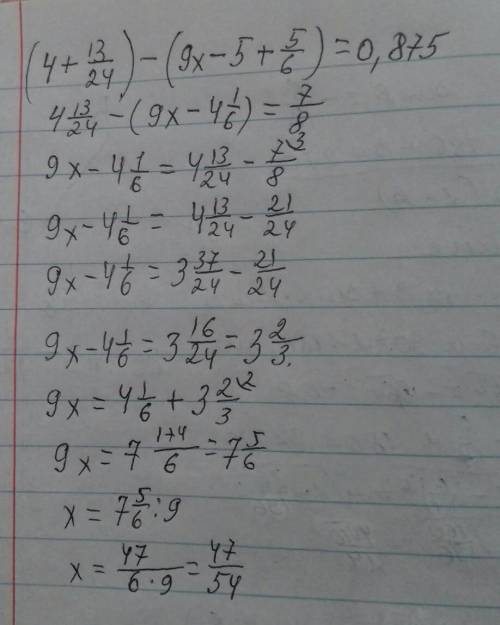 (4 + 13/24) - (9x - 5 + 5/6) = 0,875
4 13/24 - (9x - 4 1/6) = 7/8
9x - 4 1/6 = 4 13/24 - 7/8 ^3
9x - 4 1/6 = 4 13/24 - 21/24
9x - 4 1/6 = 3 37/24 - 21/24
9x - 4 1/6 = 3 16/24 = 3 2/3.
9x = 4 1/6 + 3 2/3 ^2
9x = 7 (1+4)/6 = 7 5/6
x = 7 5/6 : 9
x = 47/(6·9) = 47/54